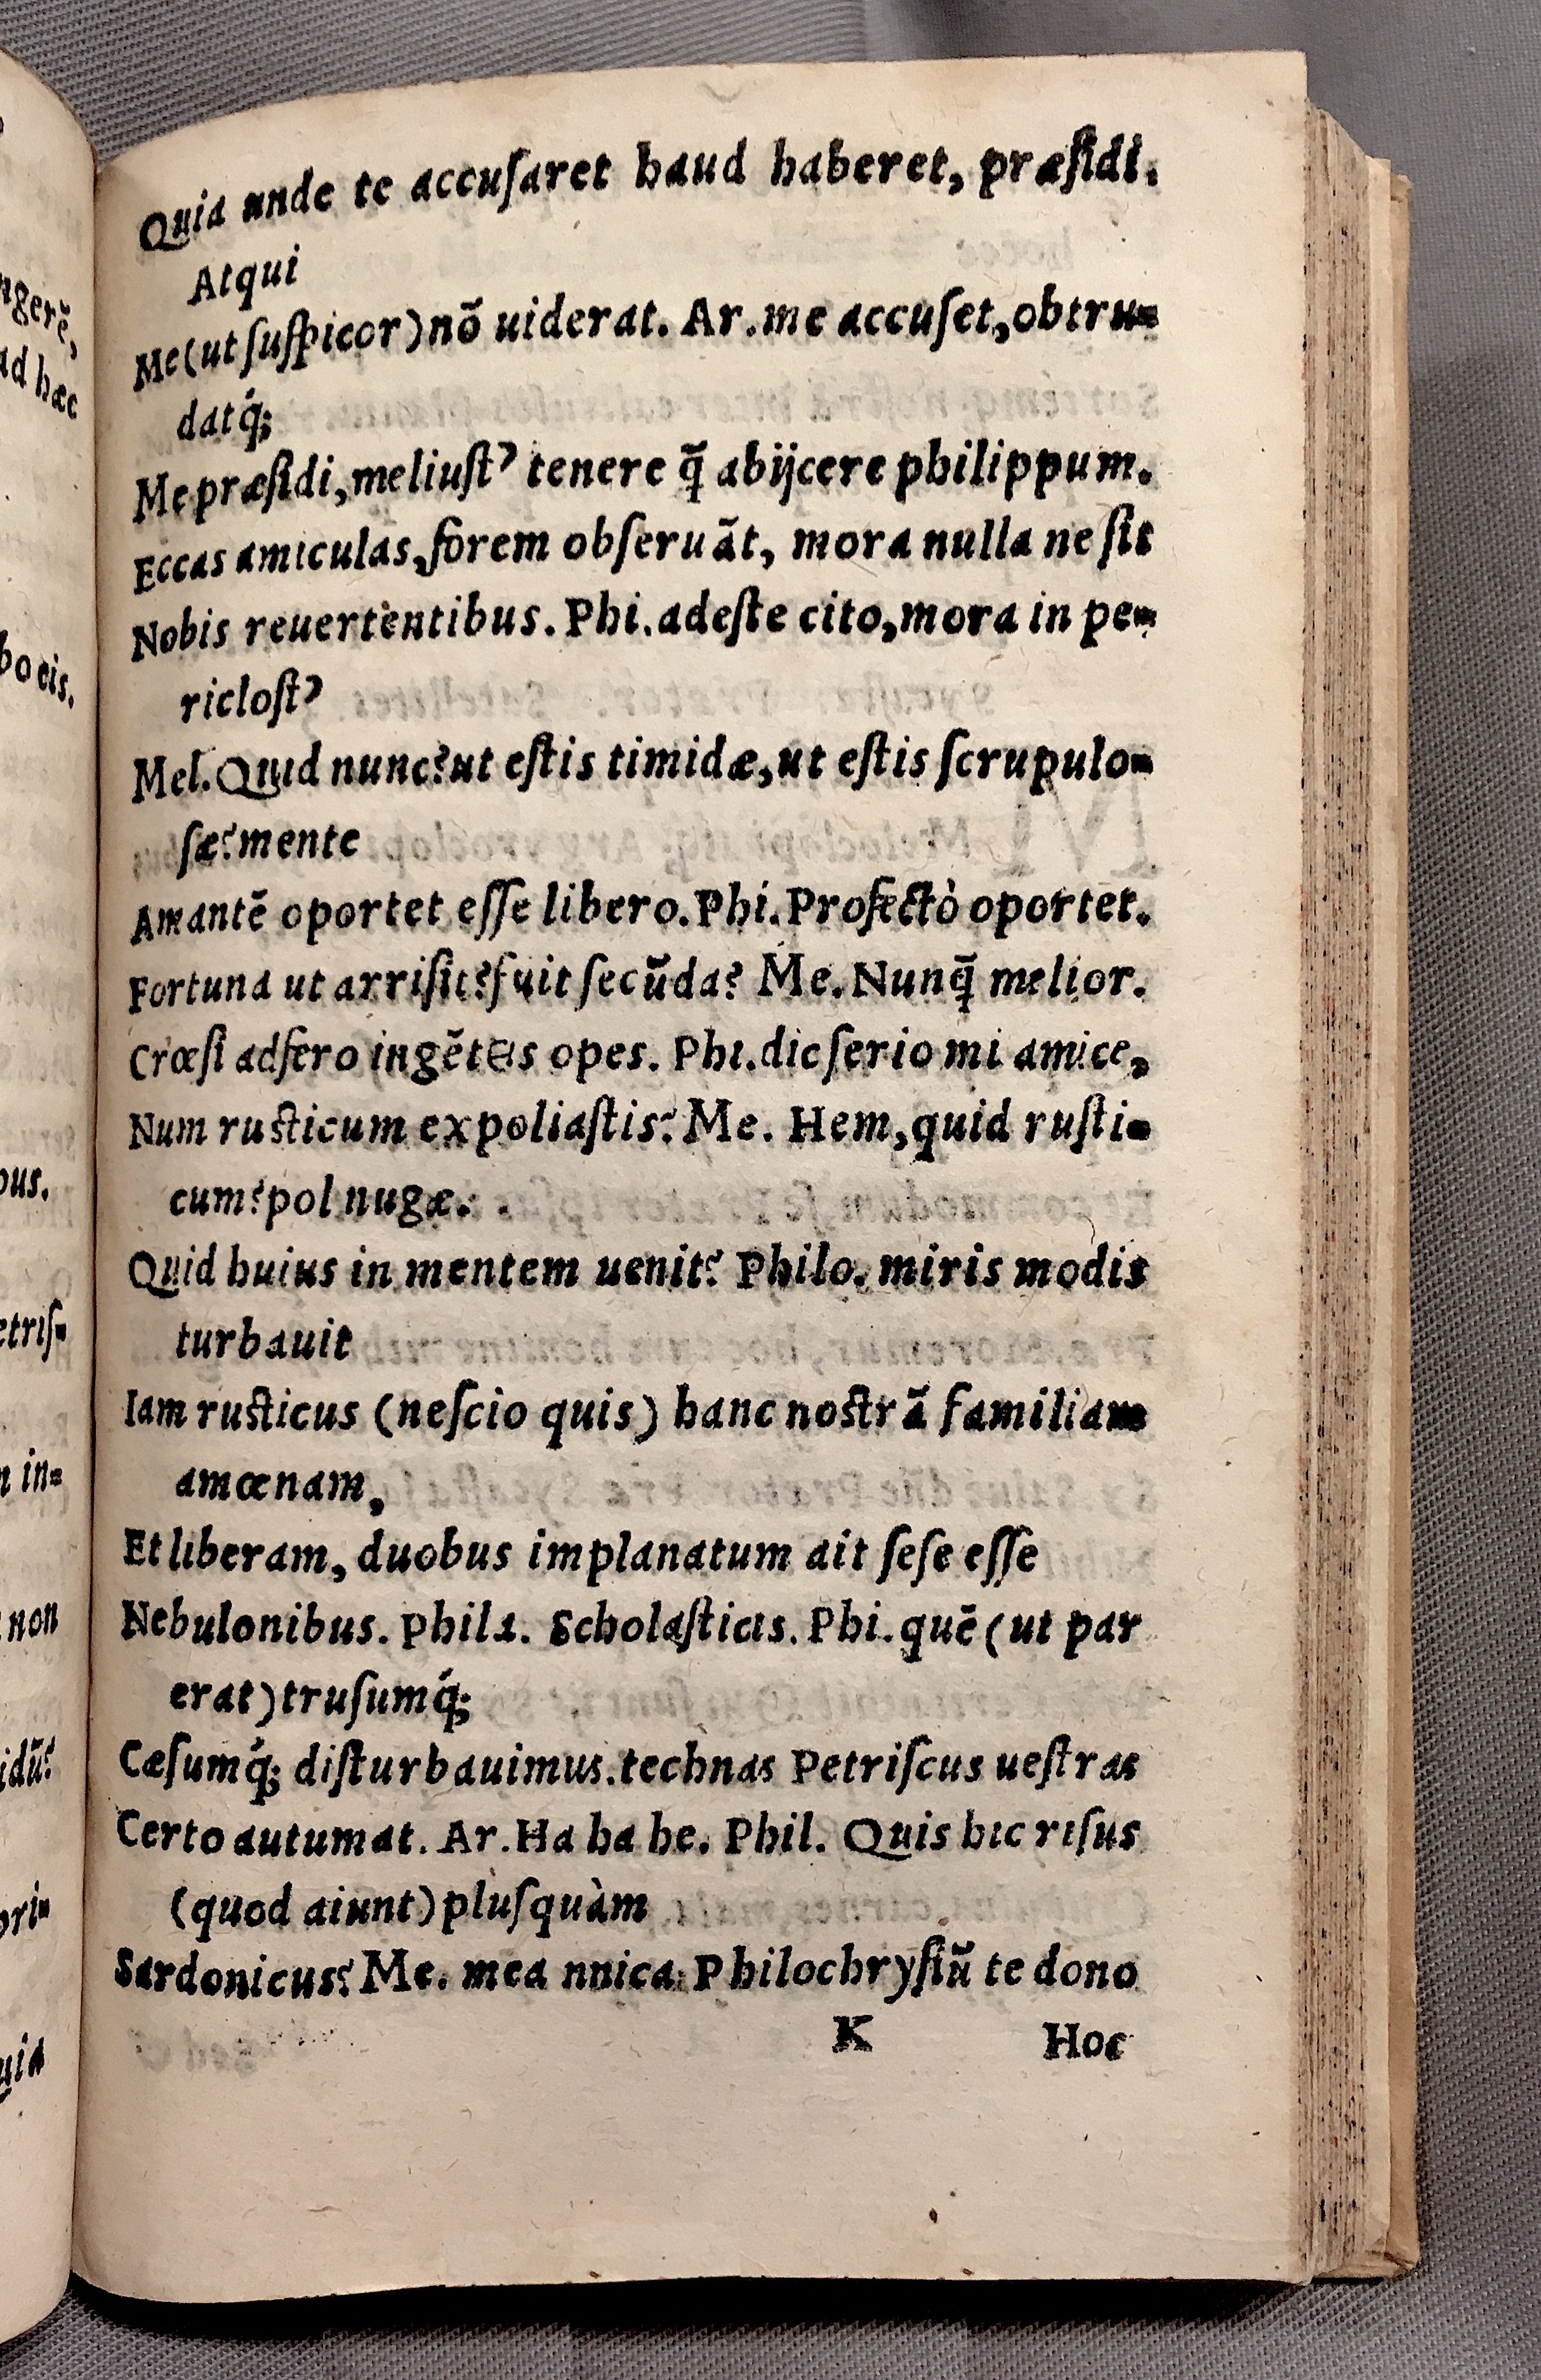 Quia unde te accuſaret haud haberet, præſidi.
Atqui
Me(ut ſuſpicor)nõ uiderat. Ar.me accuſet,obtru=
datq́;
Me præſidi,meliuſt? tenere q̃ abijcere philippum.
Eccas amiculas,forem obſeruãt, mora nulla ne ſit
Nobis reuertentibus. Phi.adeſte cito,mora in pe=
ricloſt?
Mel.Quid nunc?ut eſtis timidæ,ut eſtis ſcrupulo=
ſæ?mente
Amantẽ oportet eſſe libero.Phi.Profectò oportet.
Fortuna ut arriſit?fuit ſecũda? Me.Nunq̃ melior.
Crœſi adfero ingẽtes opes. Phi.dic ſerio mi amice,
Num ruſticum expoliaſtis? Me. Hem,quid ruſti=
cum?pol nugæ.
Quid huius in mentem uenit? Philo. miris modis
turbauit
Iam ruſticus (neſcio quis) hanc noſtrã familiam
amœnam,
Et liberam, duobus implanatum ait ſeſe eſſe
Nebulonibus. Phila. Scholaſticis. Phi.quẽ (ut par
erat)truſumq́;
Cæſumq́; diſturbauimus.technas Petriſcus ueſtras
Certo autumat. Ar.Ha ha he. Phil. Quis hic riſus
(quod aiunt)pluſquàm
Sardonicus? Me. mea nnica Philochryſiũ te dono
K Hoc
ngerẽ,
ad hæc
bo eis.
bus.
etriſ=
n in=
non
idũ?
ori=
uia